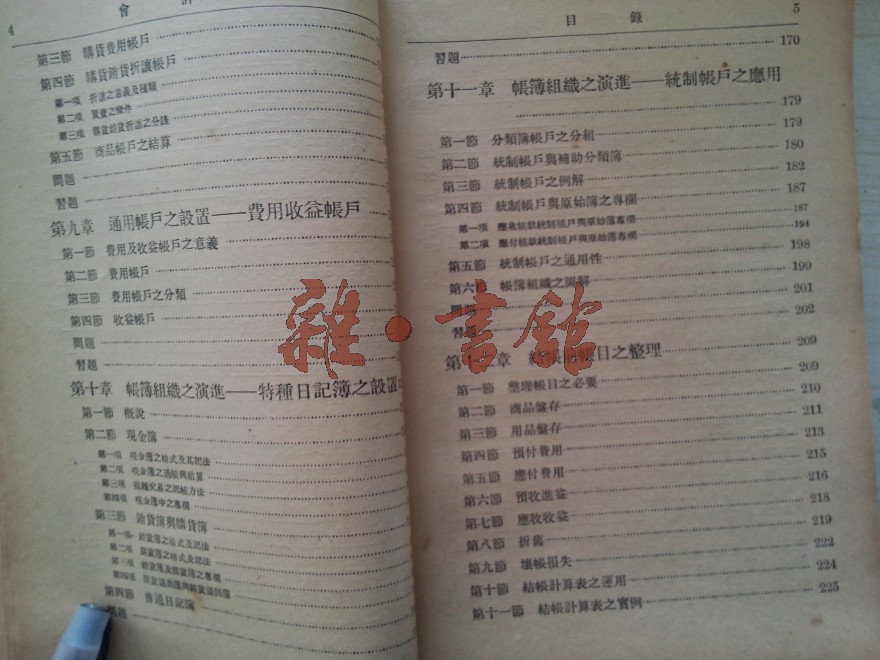 4
會
第三節 購貨費用帳戶
第四節 購貨銷貨折讓帳戶
第一項 折讓之意義及種類
第二項 買賣之條件
第三項 購貨銷貨折讓之分錄
第五節 商品帳戶之結算
問題
習題
第九章 通用帳戶之設置——費用收益帳戶
第一節 費用及收益帳戶之意義
第二節 費用帳戶
第三節 費用帳戶之分類
第四節 收益帳戶
問題
習題
第十章 帳簿組織之演進——特種日記簿之設置
第一節 概說
第二節 現金簿
第一項 現金簿之格式及其記法
第二項 現金簿之過帳與結算
第三項 現金簿之記帳方法
第四項 現金簿中之專欄
第三節 銷貨簿與購貨簿
第一項 銷貨簿之格式及記法
第二項 購貨簿之格式及記法
第三項 銷貨簿及購貨簿之專欄
第四項
第四節 普通日記簿
問題
目錄
5
習題 170
第十一章 帳簿組織之演進——統制帳戶之應用
179
第一節 分類簿帳戶之分組 179
第二節 統制帳戶與補助分類簿 180
第三節 統制帳戶之例解 182
第四節 統制帳戶與原始簿之專欄 187
第一項 應收帳款統制帳戶與原始簿專欄 187
第二項 應付帳款統制帳戶與原始簿專欄 194
第五節 統制帳戶之通用性 198
第六節 帳簿組織之圖解 199
問題 201
習題 202
第十二章 結帳前帳目之整理 209
第一節 整理帳目之必要 209
第二節 商品盤存 210
第三節 用品盤存 211
第四節 預付費用 213
第五節 應付費用 215
第六節 預收進益 216
第七節 應收收益 218
第八節 折舊 219
第九節 壞帳損失 222
第十節 結帳計算表之運用 224
第十一節 結帳計算表之實例 225
雜·書館